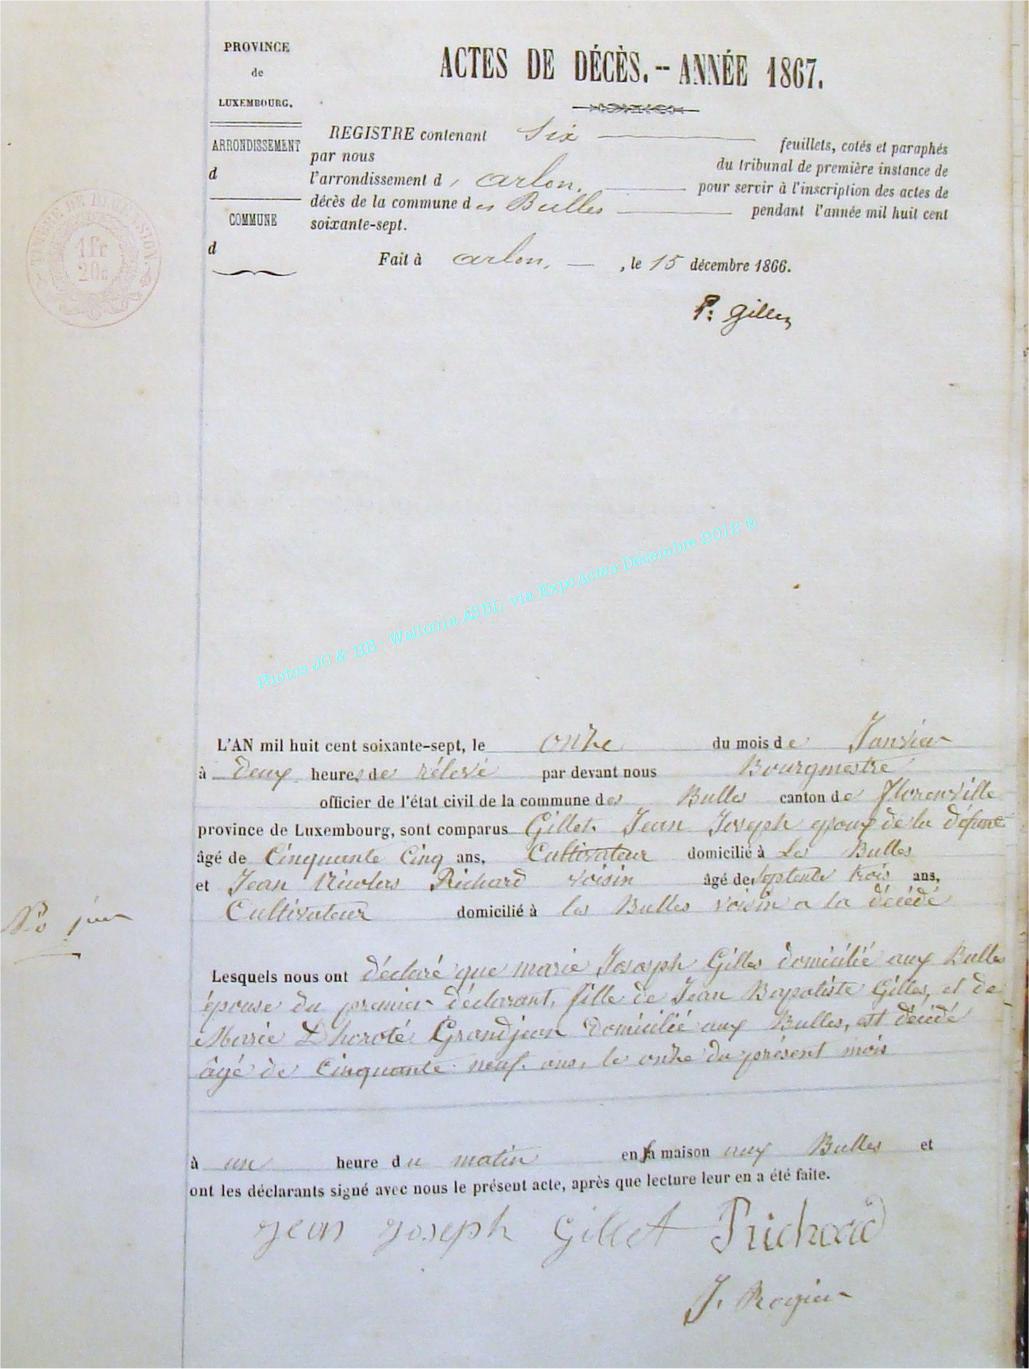 PROVINCE
de
LUXEMBOURG.
ARRONDISSEMENT
d
COMMUNE
d
TIMBRE DE DIMENSION
1fr
20c
ACTES DE DÉCÈS. -- ANNÉE 1867.
REGISTRE contenant Six feuillets, cotés et paraphés
par nous du tribunal de première instance de
l'arrondissement d' arlon. pour servir à l'inscription des actes de
décès de la commune des Bulles pendant l'année mil huit cent
soixante-sept.
Fait à arlon. , le 15 décembre 1866.
P. Gilles
Photos JC & BB - Wallonia ASBL via ExpoActes Décembre 2012 ®
L'AN mil huit cent soixante-sept, le onze du mois de Janvier
à deux heures de rélevé par devant nous Bourgmestre
officier de l'état civil de la commune des Bulles canton de florenville
province de Luxembourg, sont comparus Gillet Jean Joseph epoux de la défunte
âgé de Cinquante Cinq ans, Cultivateur domicilié à Les Bulles
et Jean Nicolas Richard voisin âgé de septente trois ans,
Cultivateur domicilié à les Bulles voisin a la décédé
Lesquels nous ont déclaré que marie Joseph Gilles domicilié aux Bulles
épouse du premier déclarant, fille de Jean Baptiste Gilles, et de
Marie Grandjean domicilié aux Bulles, est décédé
âgé de Cinquante neuf ans, le onze du présent mois
à un heure du matin en sa maison aux Bulles et
ont les déclarants signé avec nous le présent acte, après que lecture leur en a été faite.
Jean Joseph Gillet Richard
J. Rogier